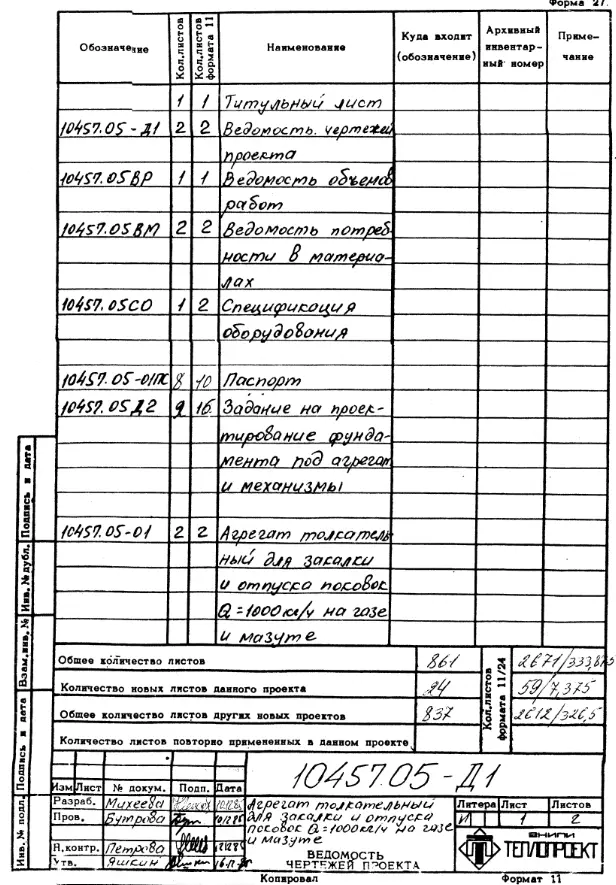 Форма 27.
Обозначение Кол.листов Кол.листов формата 11 Наименование Куда входит (обозначение) Архивный инвентарный номер Примечание
1 1 Титульный лист
10457.05-Д1 2 2 Ведомость чертежей
проекта
10457.05ВР 1 1 Ведомость объемов
работ
10457.05ВМ 2 2 Ведомость потреб-
ности в материа-
лах
10457.05СО 1 2 Спецификация
оборудования
10457.05-01ПС 8 10 Паспорт
10457.05Д2 9 16 Задание на проек-
тирование фунда-
мента под агрегат
и механизмы
10457.05-01 2 2 Агрегат толкатель-
ный для закалки
и отпуска поковок
Q=1000кг/ч на газе
и мазуте
Общее количество листов 861 Кол.листов формата 11/24 2671/333,875
Количество новых листов данного проекта 24 59/7,375
Общее количество листов других новых проектов 837 2612/326,5
Количество листов повторно примененных в данном проекте
10457.05-Д1
Изм Лист № докум. Подп. Дата
Разраб. Михеева
Пров. Бутрова
Н.контр. Петрова
Утв. Яшкин
Агрегат толкательный
для закалки и отпуска
поковок Q=1000кг/ч на газе
и мазуте
ВЕДОМОСТЬ
ЧЕРТЕЖЕЙ ПРОЕКТА
Литера Лист Листов
И 1 2
ВНИПИ
ТЕПЛОПРОЕКТ
Инв. № подл. Подпись и дата Взам.инв. № Инв. № дубл. Подпись и дата
Копировал Формат 11